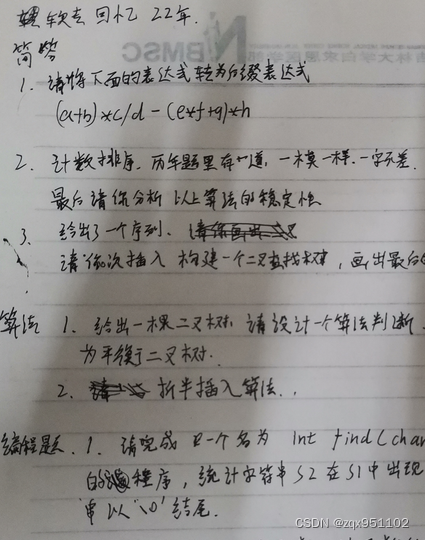 软专回忆 22年.
简答
1. 请将下面的表达式转为后缀表达式
(a+b)*c/d-(e*f+g)*h
2. 计数排序. 历年题里有一道. 一模一样. 一字不差.
最后请你分析以上算法的稳定性
3. 给出了一个序列.
请依次插入 构建一个二叉查找树, 画出最后的
算法 1. 给出一棵二叉树. 请设计一个算法判断
为平衡二叉树.
2. 折半插入算法.
编程题. 1. 请完成 一个名为 int find(char
的 程序, 统计字符串S2在S1中出现
串以'\0'结尾.
BMSC
CSDN @zqx951102